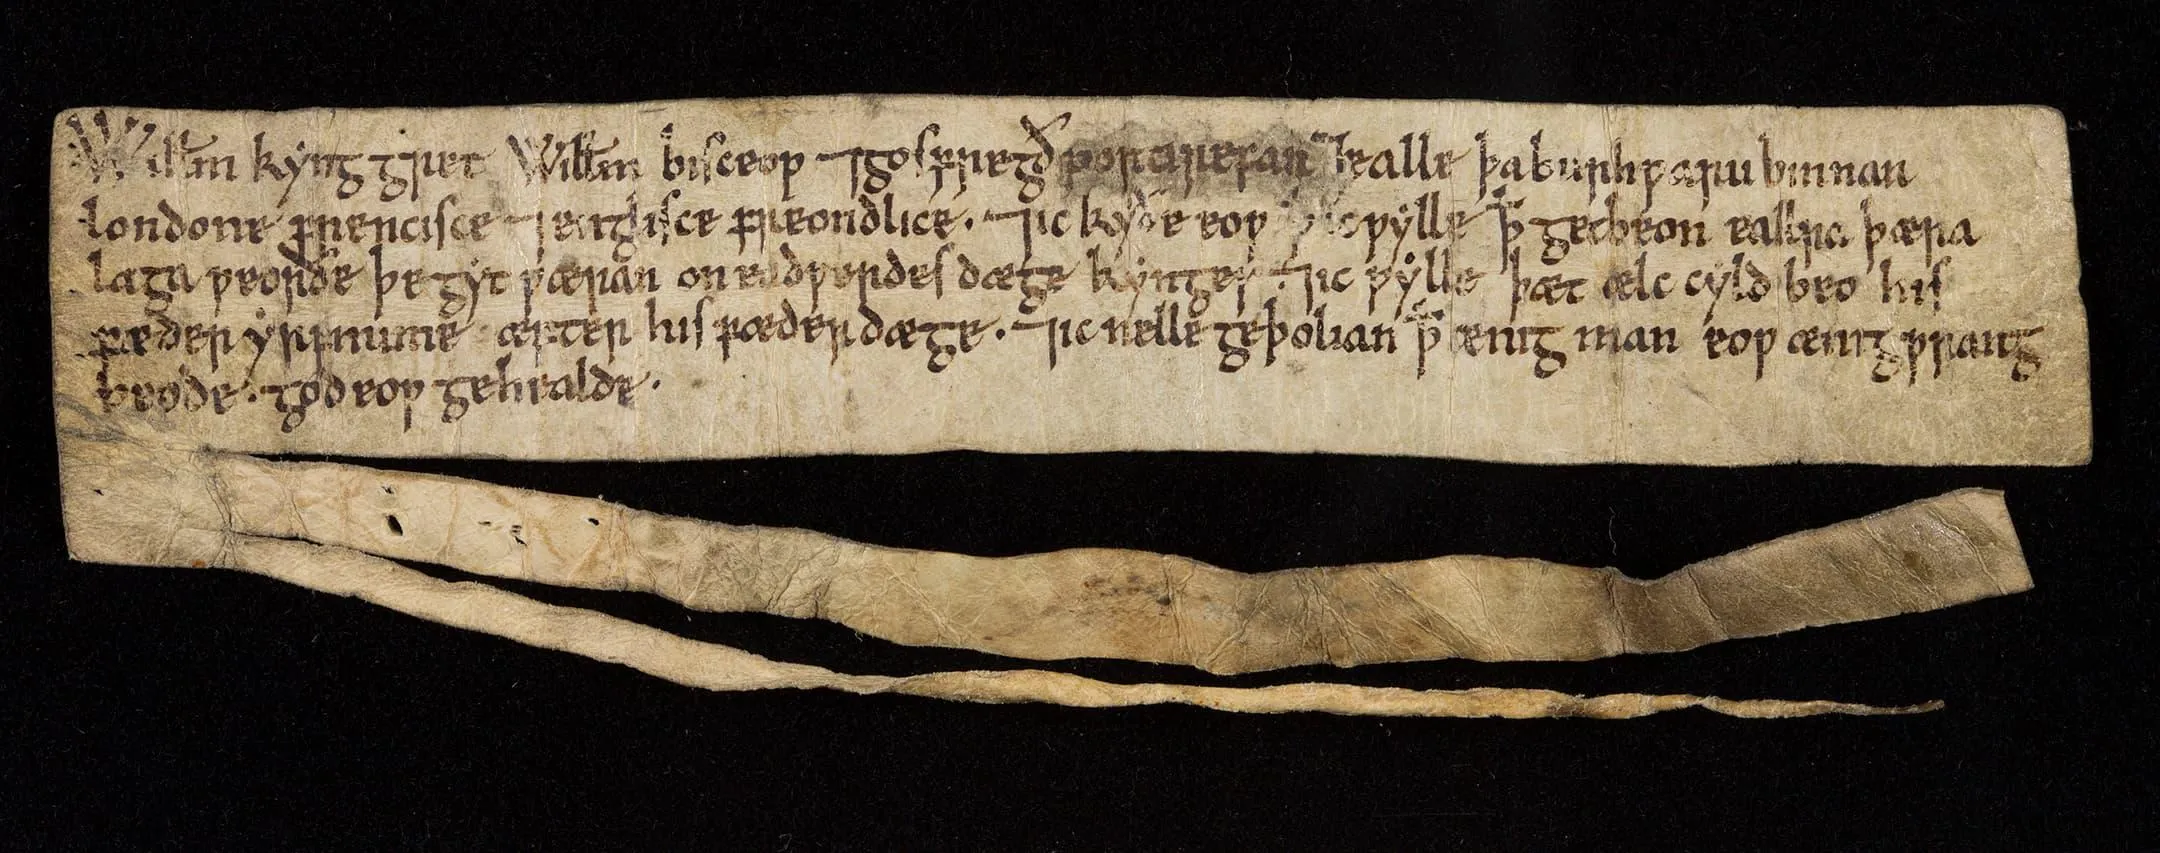 Willm kyng gret Willm bisceop ⁊ gosfregð portirefan ⁊ ealle þa burhwaru binnan
londone frencisce ⁊ englisce freondlice · ⁊ ic kyðe eow þ ic wylle þ get beon eallra þæra
laga weorðe þe gyt wæran on eadwerdes dæge kynges · ⁊ ic wylle þæt ælc cyld beo his
fæder yrfnume æfter his fæder dæge · ⁊ ic nelle geþolian þ ænig man eow ænig wrang
beode · god eow gehealde ·